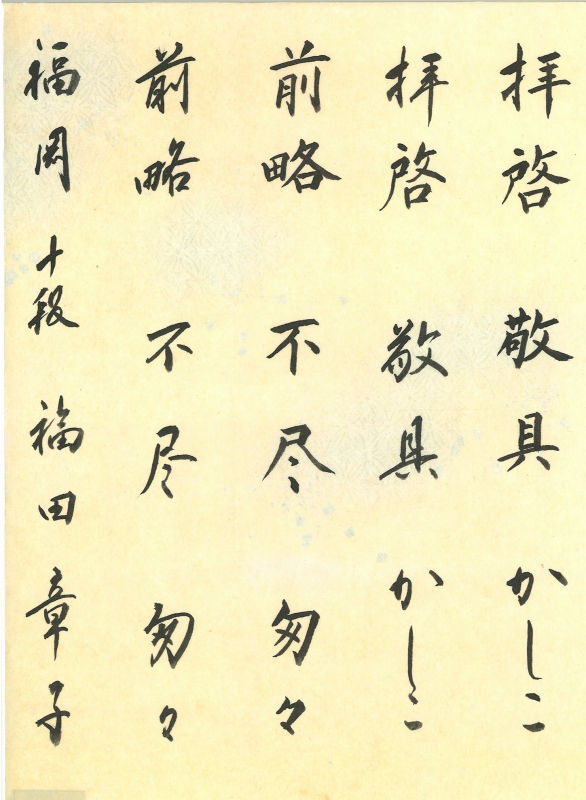 拝啓 敬具 かしこ
拝啓 敬具 かしこ
前略 不尽 匆々
前略 不尽 匆々
福岡 十段 福田章子